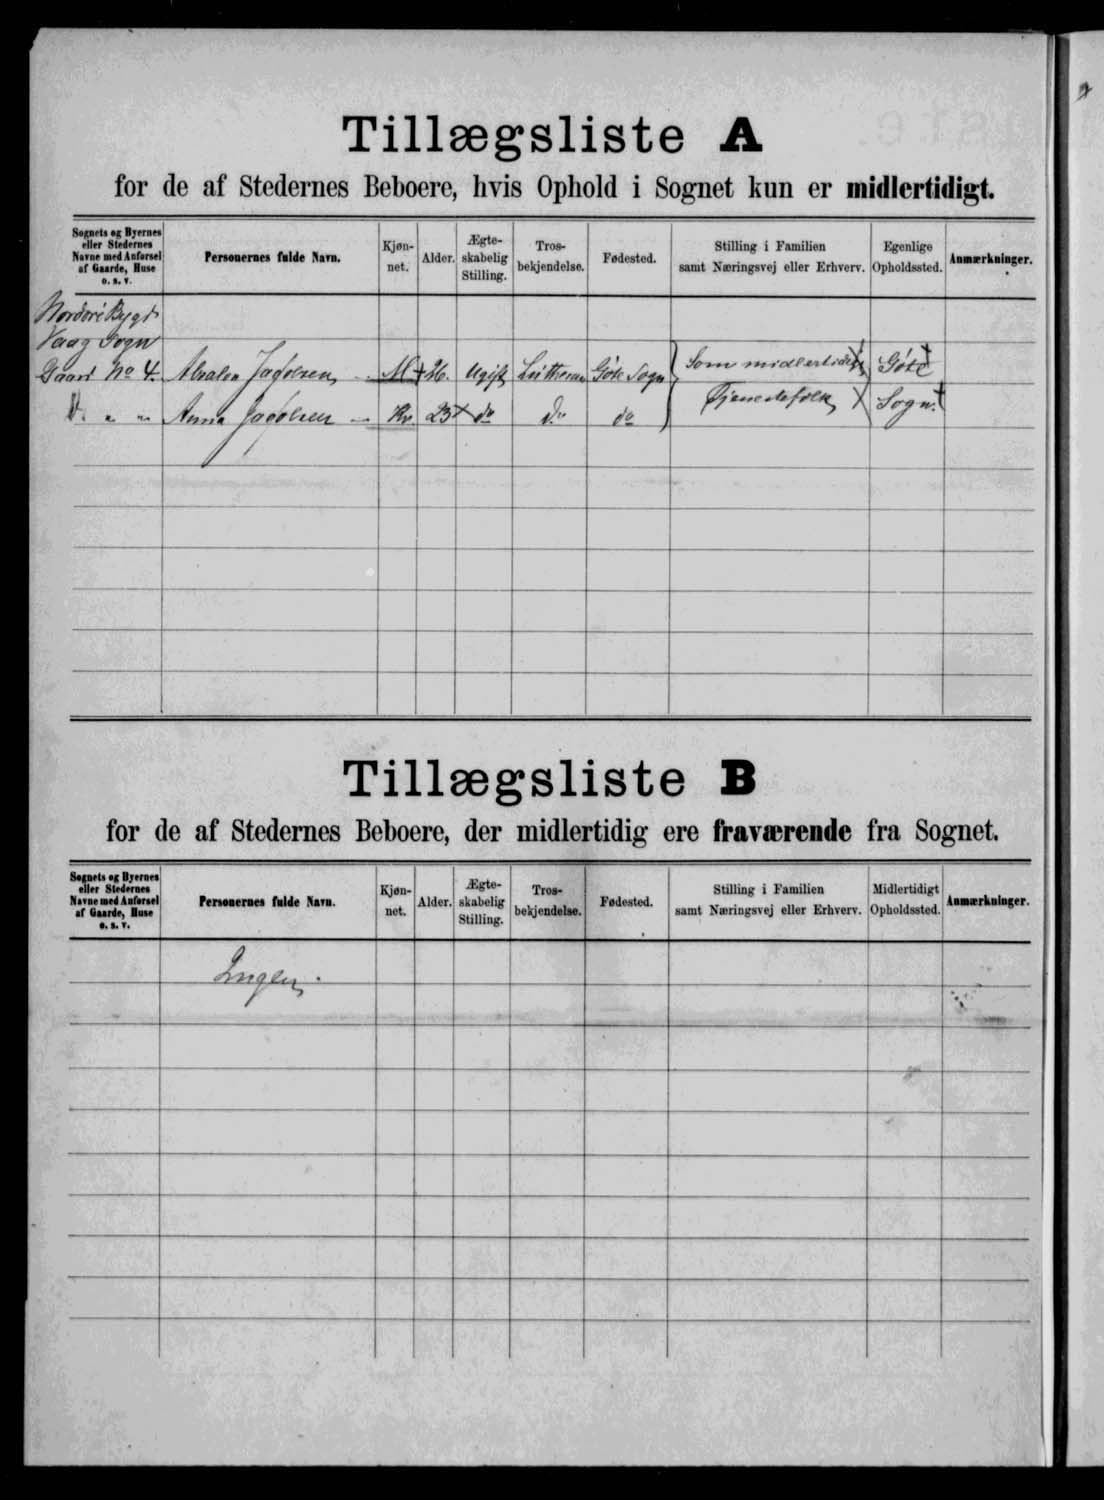 Tillægsliste A
for de af Stedernes Beboere, hvis Ophold i Sognet kun er midlertidigt.
Sognets og Byernes eller Stedernes Navne med Anførsel af Gaarde, Huse o. s. v.
Personernes fulde Navn.
Kjøn-
net.
Alder.
Ægte-
skabelig
Stilling.
Tros-
bekjendelse.
Fødested.
Stilling i Familien
samt Næringsvej eller Erhverv.
Egenlige
Opholdssted.
Anmærkninger.
Nordöre Bygd
Vaag Sogn
Gaard No 4. Absalon M 26. Ugift Luthersk Göte Sogn Som midlertidige Göte
D. " " Anna Kv. 23 do do do Tjenestefolk Sogn.
Tillægsliste B
for de af Stedernes Beboere, der midlertidig ere fraværende fra Sognet.
Sognets og Byernes eller Stedernes Navne med Anførsel af Gaarde, Huse o. s. v.
Personernes fulde Navn.
Kjøn-
net.
Alder.
Ægte-
skabelig
Stilling.
Tros-
bekjendelse.
Fødested.
Stilling i Familien
samt Næringsvej eller Erhverv.
Midlertidigt
Opholdssted.
Anmærkninger.
Ingen.